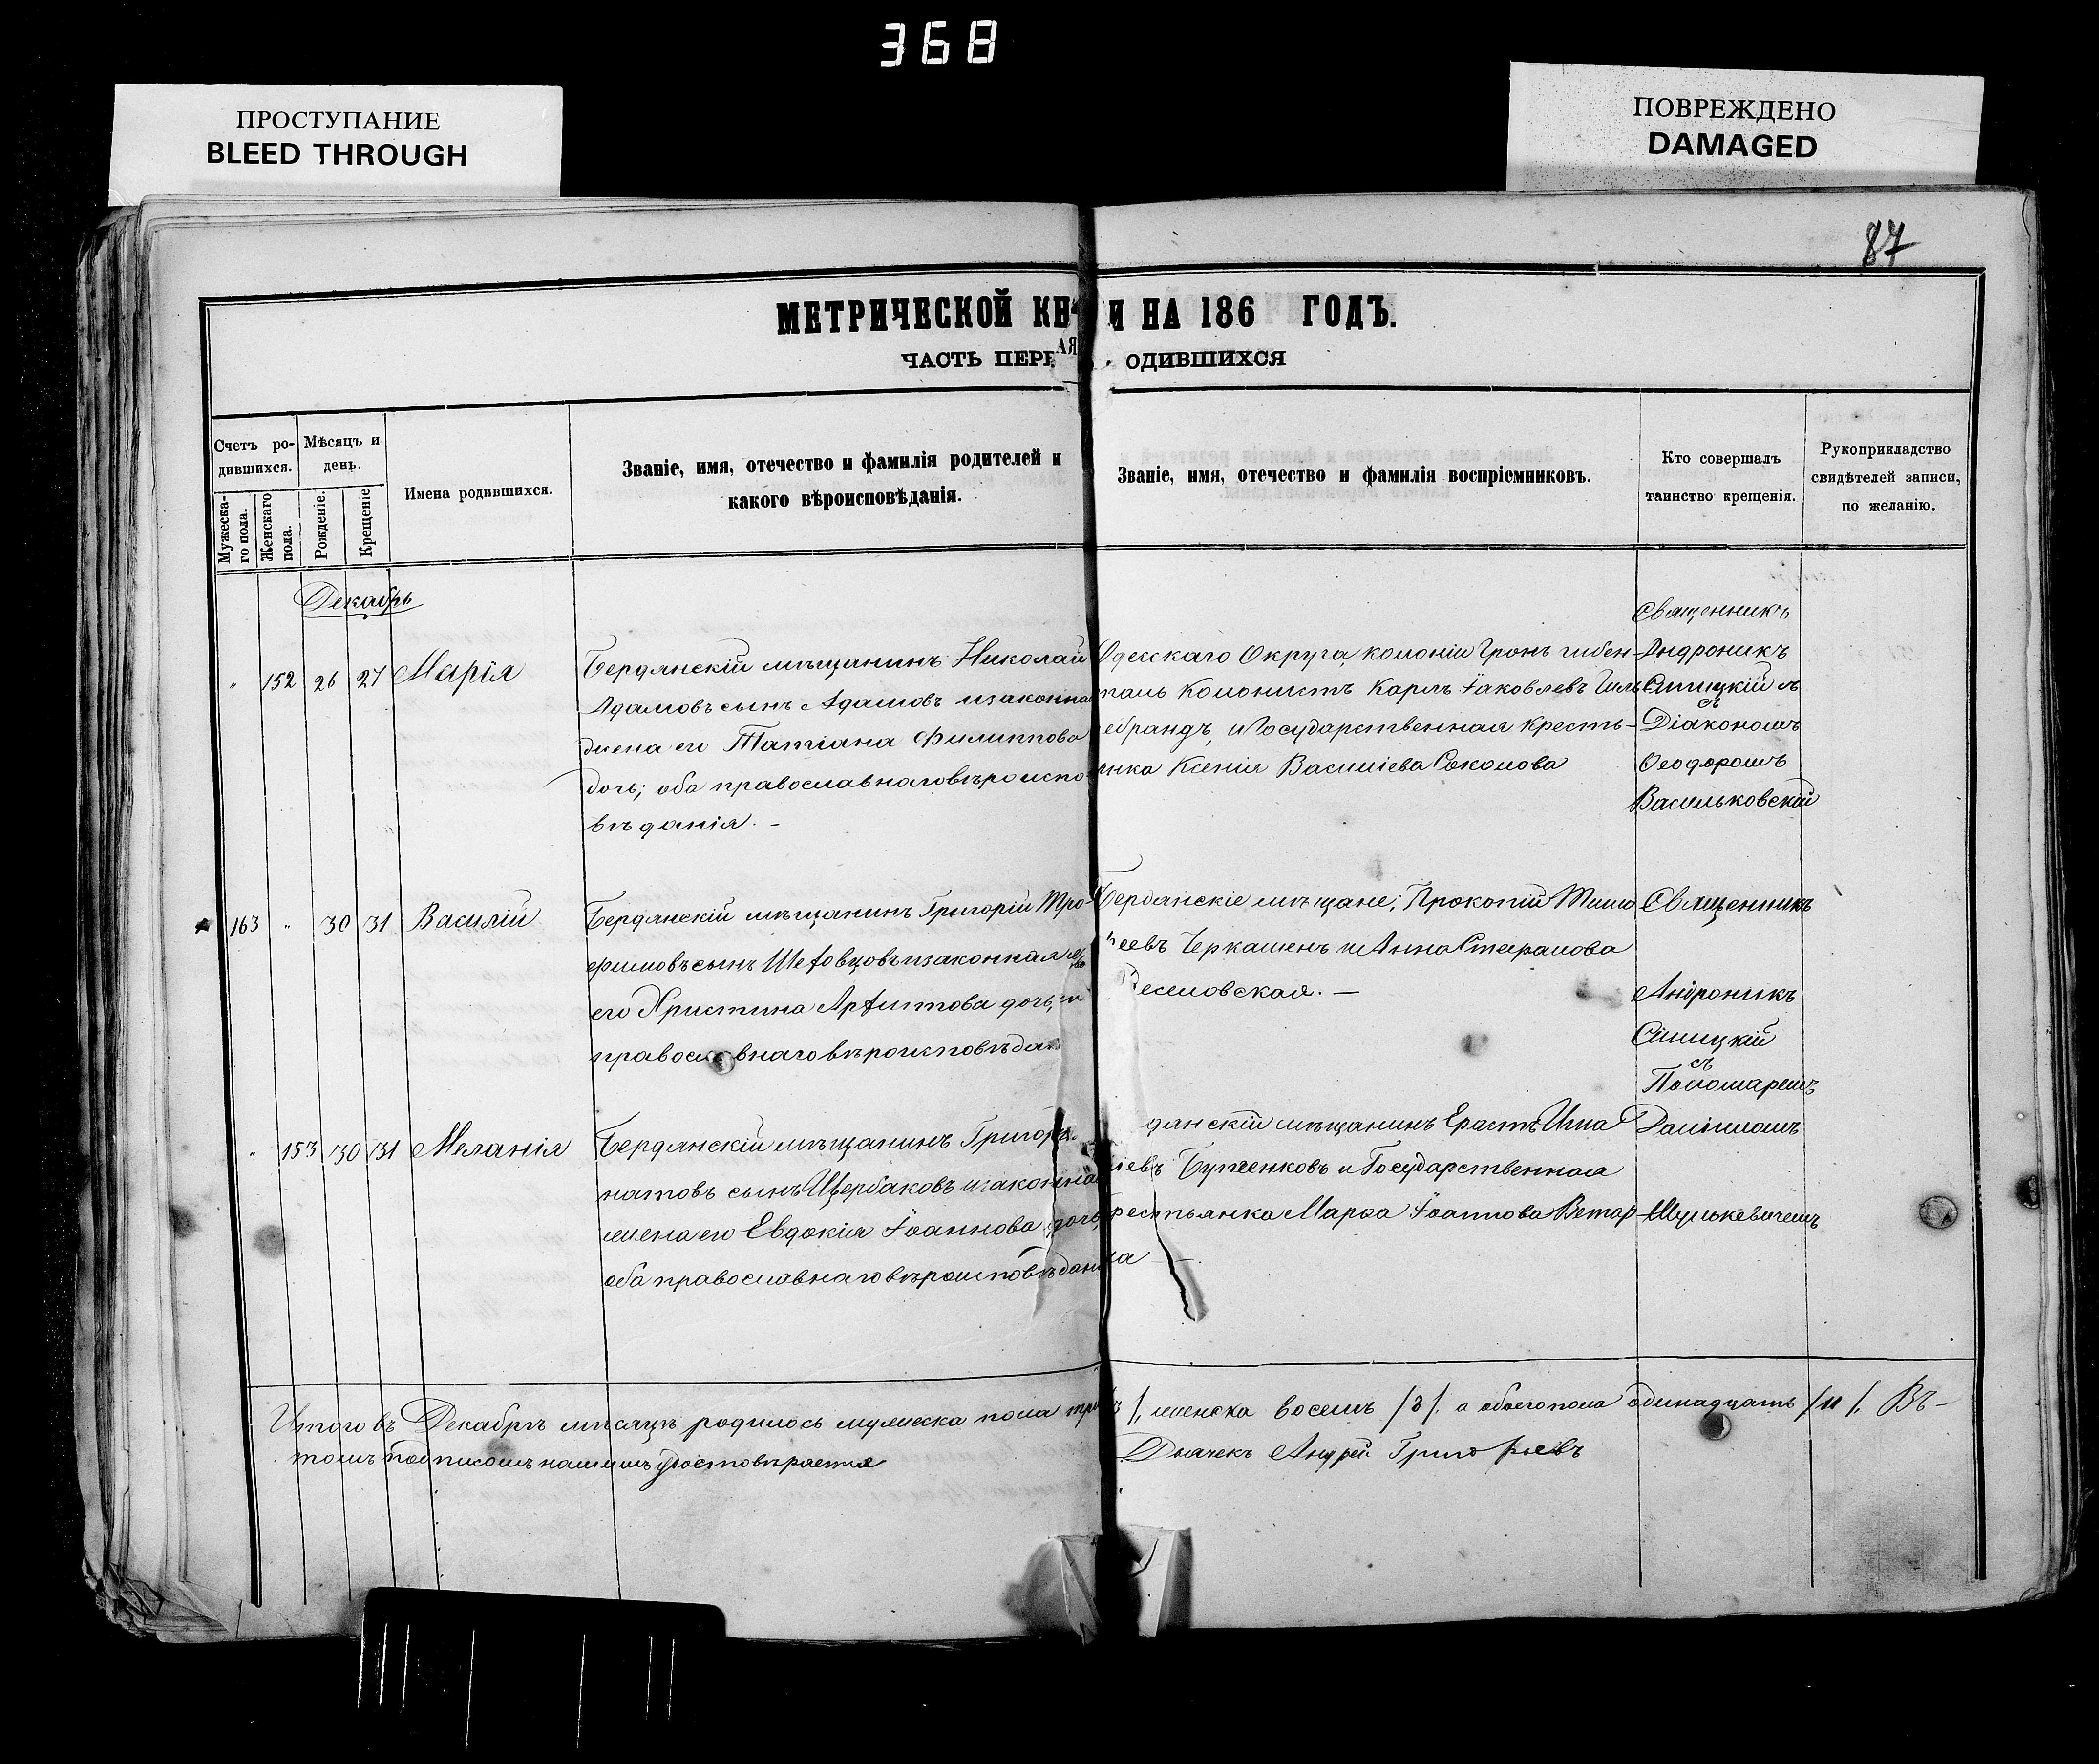 368
ПРОСТУПАНИЕ
BLEED THROUGH
ПОВРЕЖДЕНО
DAMAGED
87
МЕТРИЧЕСКОЙ КН И НА 186 ГОДЪ.
ЧАСТЬ ПЕРВАЯ ОДИВШИХСЯ
Счетъ ро-
дившихся.
Мужеска-
го пола.
Женскаго
пола.
Мѣсяцъ и
день.
Рожденіе.
Крещеніе
Имена родившихся.
Званіе, имя, отечество и фамилія родителей и
какого вѣроисповѣданія.
Званіе, имя, отечество и фамилія воспріемниковъ.
Кто совершалъ
таинство крещенія.
Рукоприкладство
свидѣтелей записи,
по желанію.
Декабрь
" 152 26 27 Марія
Бердянскій мѣщанинъ Николай
Адамовъ сынъ Адамовъ и законная
жена его Татіана Филиппова
дочь; оба православнаго вѣроиспо-
вѣданія. -
Одесскаго Округа, колоніи
колонистъ Карлъ Іаковлевъ Гиль
ебрандъ, и Государственная кресть-
янка Ксенія Василіева Соколова
Священникъ
Андроникъ
съ
Діакономъ
Ѳеодоромъ
Васильковскій
163 " 30 31 Василій
Бердянскій мѣщанинъ Григорій Тро-
фимовъ сынъ и законная
его Христина дочь,
православнаго вѣроисповѣдан
Бердянскіе мѣщане; Прокопій Тимо
ѳеевъ Черкашенъ и Анна
Веселовская. —
Священникъ
Андроникъ
съ
Пономаремъ
" 153 30 31 Меланія
Бердянскій мѣщанинъ Григорій
натовъ сынъ Щербаковъ и законная
жена его Евдокія Іоаннова дочь,
оба православнаго вѣроисповѣдан
дянскій мѣщанинъ Ерастъ Игна
іевъ и Государственная
крестьянка Марѳа Іоаннова
ка —.
Даніиломъ
Шулькевичемъ
Итого въ Декабрѣ мѣсяцѣ родилось мужеска пола три /3/, женска восемь /8/. а обоего пола одинадцать /11/. Въ-
томъ подписомъ нашимъ удостовѣряемъ
Дьячекъ Андрей Григорьевъ